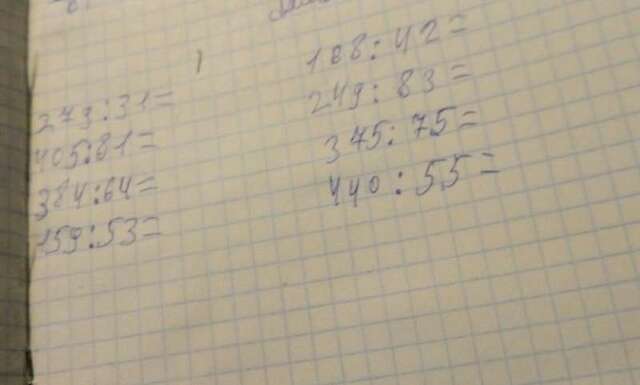 279:31=
405:81=
384:64=
159:53=
168:42=
249:83=
375:75=
440:55=